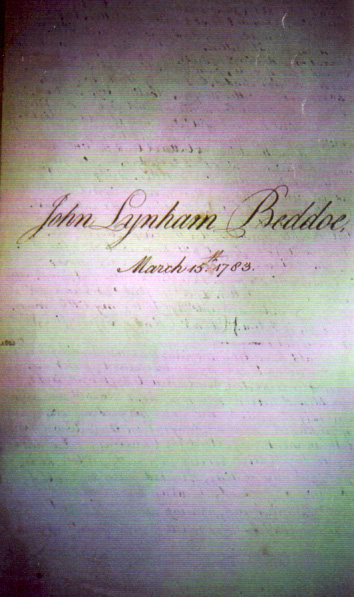 John Lynham Beddoe,
March 15th 1783.